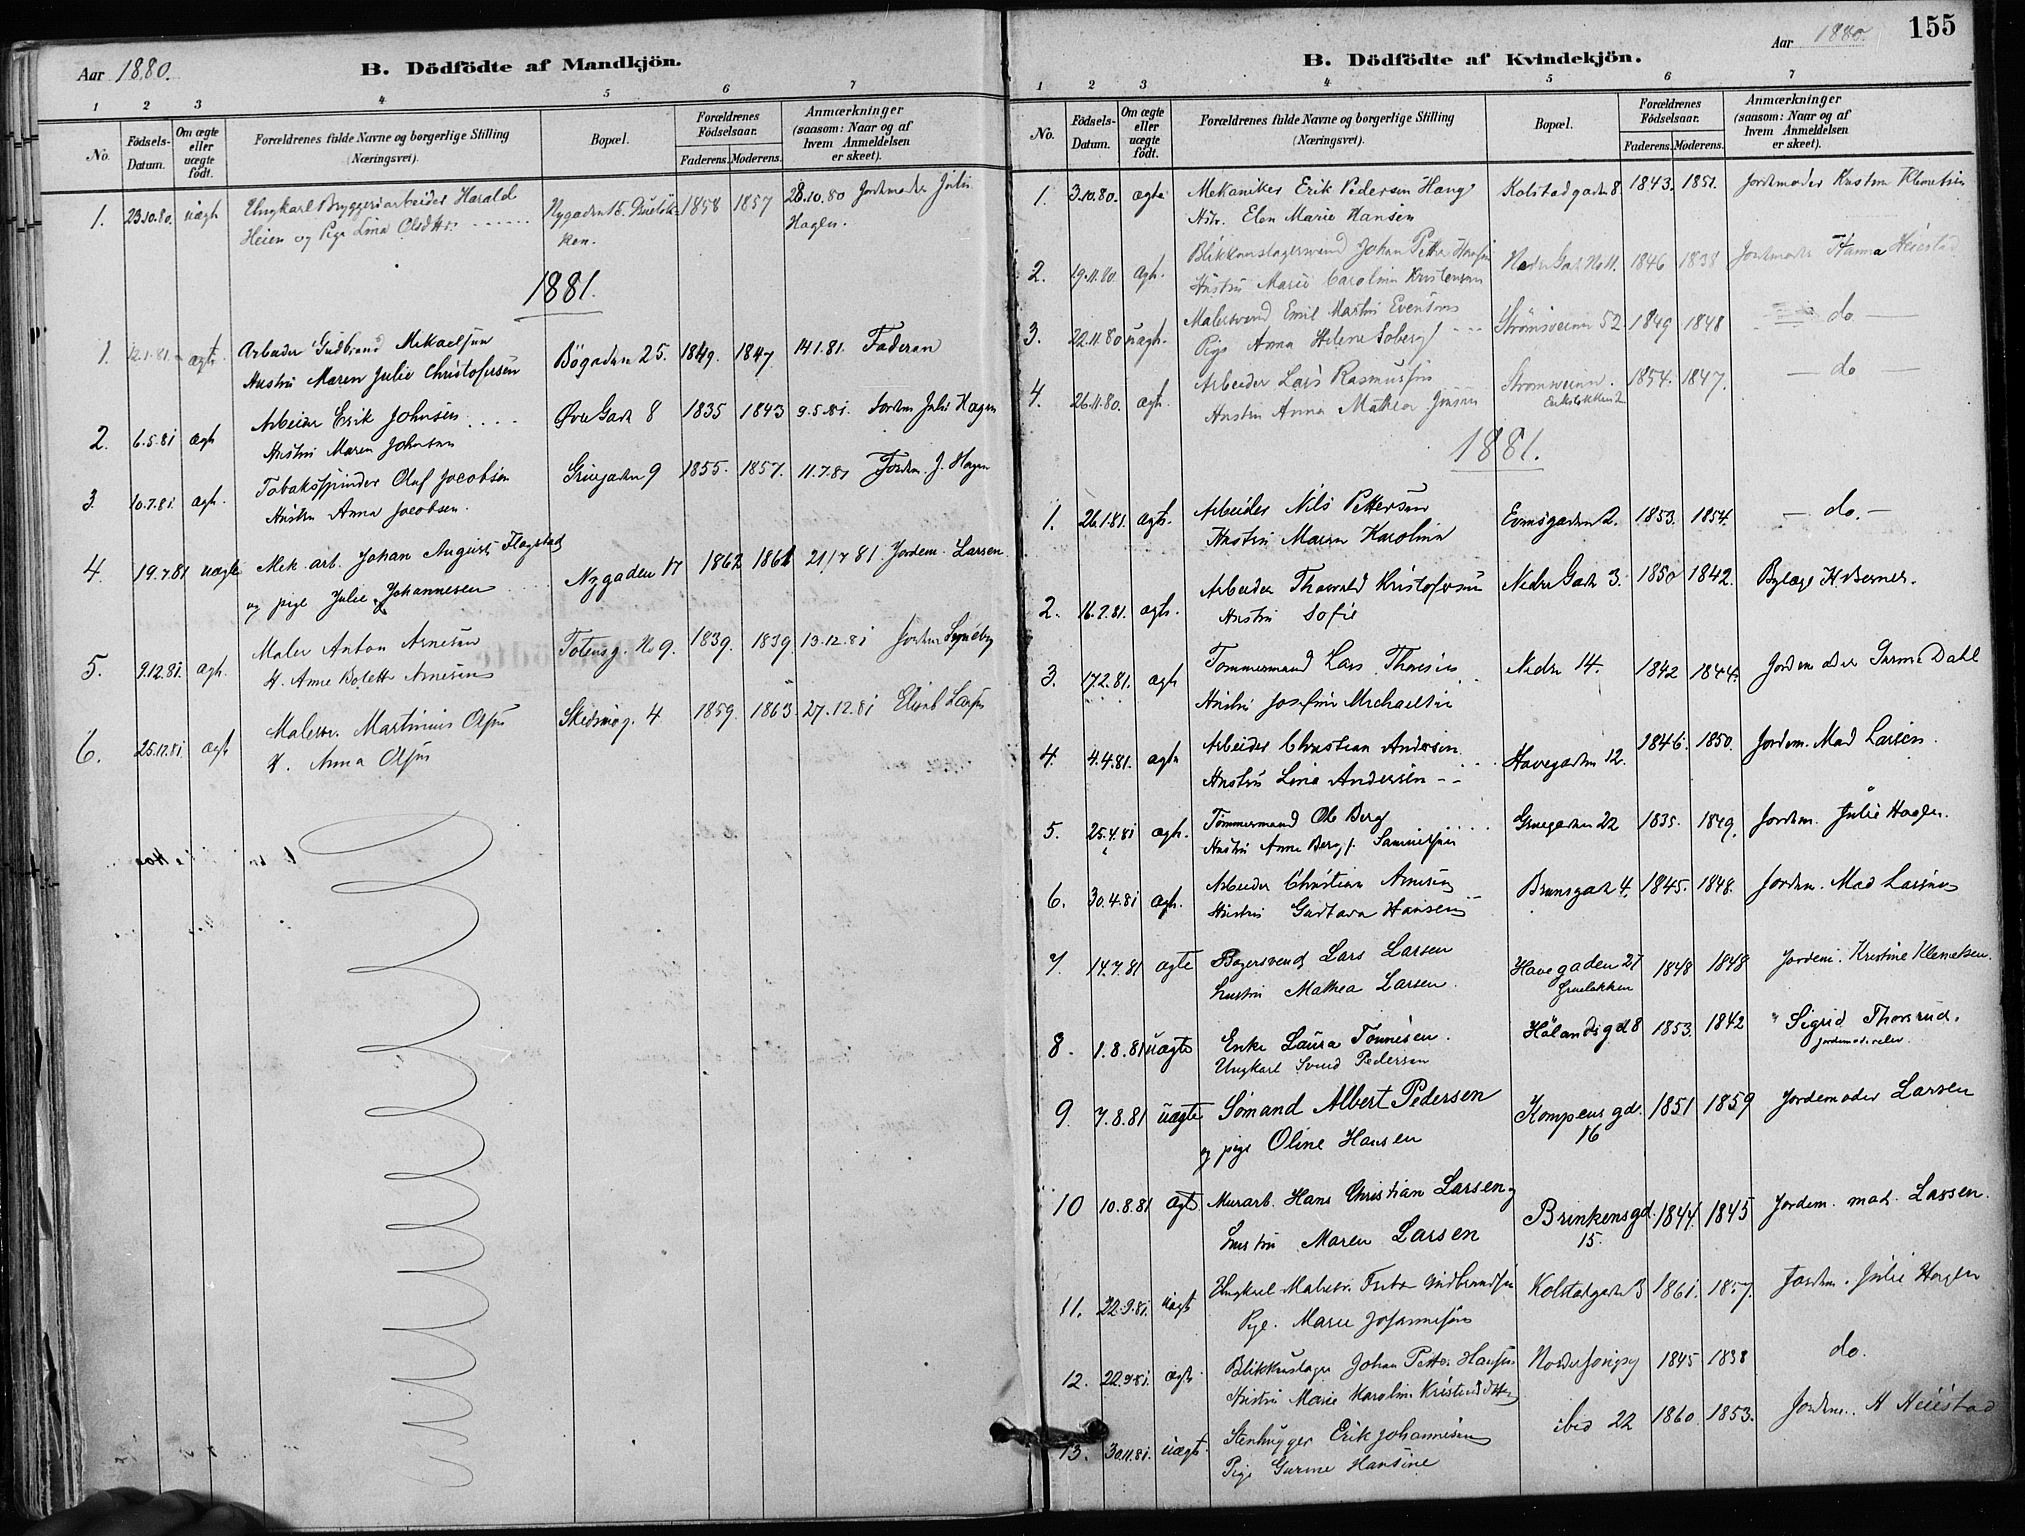 Aar 1880.
B. Dödfödte af Mandkjön.
1 2 3 4 5 6 7
No.
Födsels-Datum.
Om ægte eller uægte født.
Forældrenes fulde Navne og borgerlige Stilling
(Næringsvei).
Bopæl.
Forældrenes Födselsaar.
Faderens. Moderens.
Anmærkninger
(saasom: Naar og af
hvem Anmeldelsen
er skeet).
1. 23.10.80. uægt Ungkarl Bryggeriarbeider Harald Nygaden 15. 1858 1857 28.10.80 Jordemoder Julie
Heien og Pige Lina Olsdtr. Hagen.
1881.
1. 12.1.81 ægte Arbeider Gudbrand Mikaelsen Bøgaden 25. 1849. 1847. 14.1.81. Faderen
Hustru Maren Julie Christofersen
2. 6.5.81 ægte Arbeider Erik Johnsen Øvre Gade 8 1835 1843 9.5.81. Jordem Julie Hagen
Hustru Maren Johnsen
3. 10.7.81. ægte. Tobaksspinder Oluf Jacobsen Gruegaden 9 1855. 1857. 11.7.81 Jordem. J. Hagen
Hustru Anna Jacobsen.
4. 19.7.81 uægte Mek. arb. Johan August Flagstad Nygaden 17 1862 1861 21/7 81 Jordem. Larsen
og pige Julie Johannesen
5. 9.12.81. ægte. Maler Anton Arnesen Totensg. No 9. 1839. 1839 13.12.81 Jordem
H. Anne Bolette Arnesen
6. 25.12.81 ægte Malersv. Martinius Olsen Skidsmog. 4 1859. 1863. 27.12.81
H. Anna Olsen
Aar 1880.
155
B. Dödfödte af Kvindekjön.
1 2 3 4 5 6 7
No.
Födsels-Datum.
Om ægte eller uægte født.
Forældrenes fulde Navne og borgerlige Stilling
(Næringsvei).
Bopæl.
Forældrenes Födselsaar.
Faderens. Moderens.
Anmærkninger
(saasom: Naar og af
hvem Anmeldelsen
er skeet).
1. 3.10.80. ægte Mekaniker Erik Pedersen Haug Kolstadgaden 8 1843. 1851. Jordemoder Kristine Klemetsen
Hstr. Elen Marie Hansen
2. 19.11.80. ægte. Blikkenslagersvend Johan Petter Hansen Nedre Gade No 11. 1846 1838 Jordemoder Hanna Heiestad
Hustru Marie Caroline Kristensen
3. 22.11.80 uægte. Malersvend Emil Martin Evensen Strømsveien 52 1849 1848 — do —
Pige Anna Helene Soberg
4. 26.11.80. ægte. Arbeider Lars Rasmussen Strømsveien. 1854. 1847. — do —
Hustru Anna Mathea Jensen
1881.
1. 26.1.81. ægte. Arbeider Nils Pettersen Evensgaden 2. 1853. 1854. — do. —
Hustru Maren Karoline
2. 16.2.81. ægte. Arbeider Thorvald Kristofersen Nedre Gade 3. 1850 1842. Bylæge H. Berner.
Hustru Sofie
3. 17.2.81. ægte Tømmermand Lars Thoresen Nedre 14. 1842 1844. Jordemoder Dahl
Hustru Josefine Michaelsen
4. 4.4.81. ægte Arbeider Christian Andersen Havegaden 12. 1846. 1850. Jordem. Mad Larsen.
Hustru Lina Andersen
5. 25.4.81 ægte. Tømmermand Ole Berg Gruegaden 22 1835. 1849. Jordem. Julie Hagen.
Hustru Anne Berg f. Samuelsen
6. 30.4.81 ægte. Arbeider Christian Arnesen Brunsgade 4. 1845. 1848. Jordem. Mad Larsen
Hustru Gustava Hansen
7. 14.7.81 ægte Bagersvend Lars Larsen Havegaden 27 1848 1848 Jordem. Kristine Klemetsen.
hustru Mathea Larsen. Grueløkken
8. 1.8.81 uægte Enke Laura Tønnesen. Hølandsgd 8 1853. 1842 " Sigrid Thorsrud.
Ungkarl Svend Pedersen
9. 7.8.81 uægte Sømand Albert Pedersen Kompens gd. 1851 1859 Jordemoder Larsen
og pige Oline Hansen 16
10 10.8.81 ægte Murarb. Hans Christian Larsen Brinkensgd. 1844. 1845 Jordem. mad. Larsen.
hustru Maren Larsen 15.
11. 22.9.81. uægte Ungkarl Malersv. Gudbrandsen Kolstadgaden 3 1861. 1857. Jordem. Julie Hagen
Pige. Marie Johannesen
12. 22.9.81. ægte Blikkenslager Johan Petter Hansen 1845 1838 do.
Hustru Marie Karoline Kristensdtr
13. 30.11.81. uægte. Stenhugger Erik Johannesen ibid 22 1860 1853. Jordem. H Heiestad
Pige Gurine Hansine